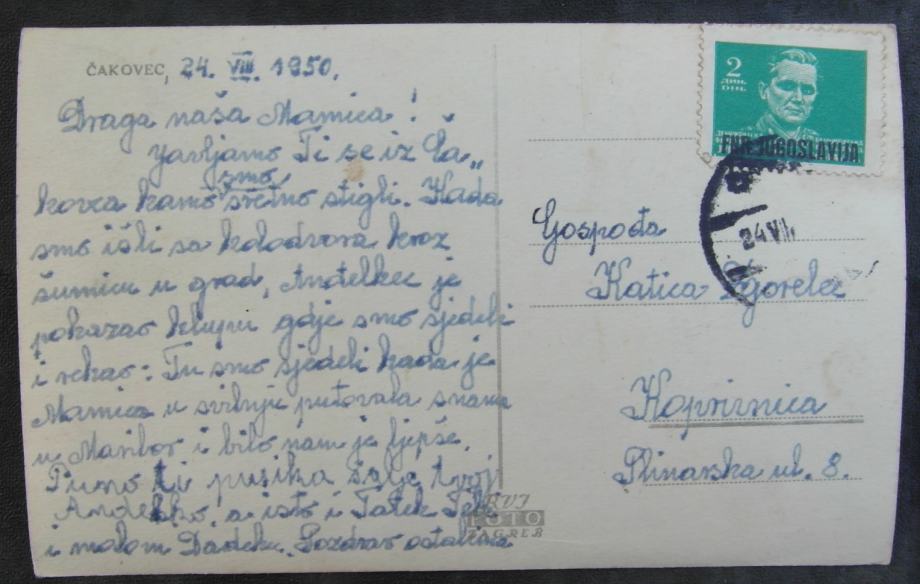 ČAKOVEC, 24. VIII. 1950.
Draga naša Mamica!
Javljamo Ti se iz Ča„
kovca kamo smo sretno stigli. Kada
smo išli sa kolodvora kroz
šumicu u grad, Anđelkec je
pokazao klupu gdje smo sjedeli
i rekao: Tu smo sjedeli kada je
Mamica u svibnju putovala s nama
u Maribor i bilo nam je ljepše.
Puno ti pusika šalje tvoj
Anđelko, a isto i Tatek Tebi
i malom Dadeku. Pozdrav ostalima
2
ДИН.
DIN.
FNR JUGOSLAVIJA
24 VIII
Gospođa
Katica Zgorelec
Koprivnica
Plinarska ul. 8.
PRVI
FOTO
ZAGREB